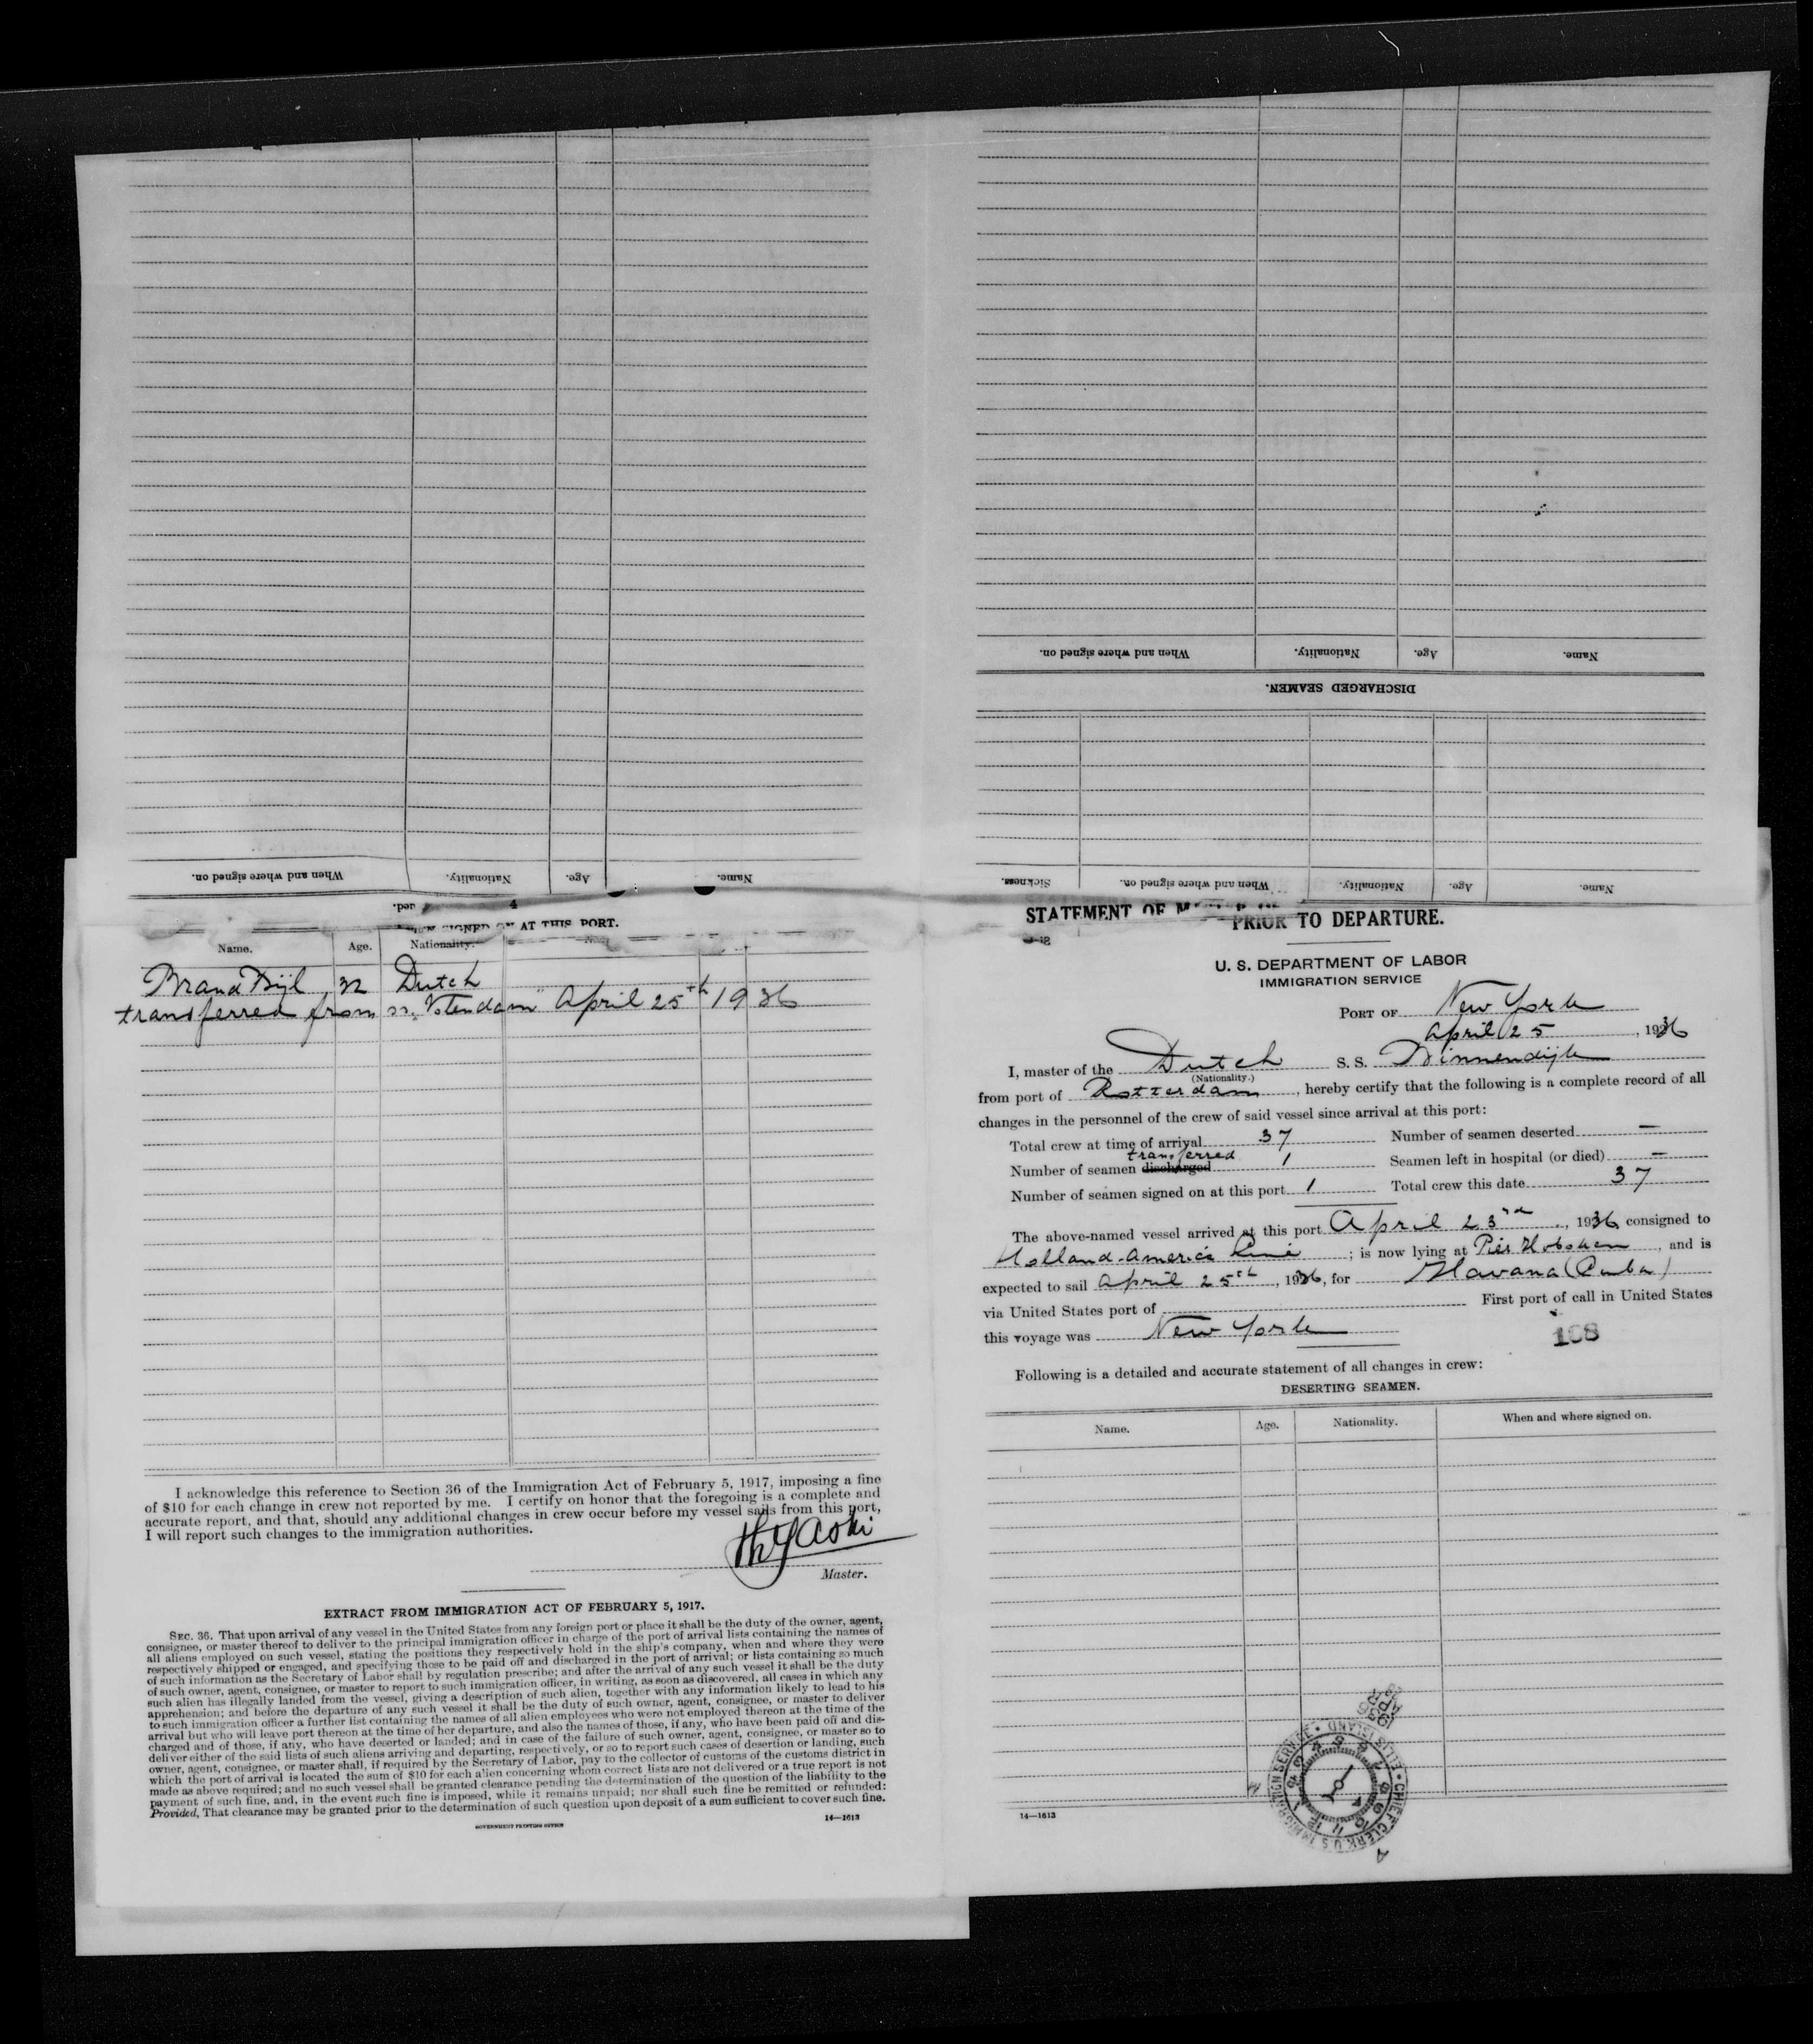 When and where signed on.
Nationality.
Age.
Name.
ed.
AT THIS PORT.
Name.
Age.
Nationality.
Brand Bijl 32 Dutch
transferred from ss. Volendam April 25th 1936
I acknowledge this reference to Section 36 of the Immigration Act of February 5, 1917, imposing a fine
of $10 for each change in crew not reported by me. I certify on honor that the foregoing is a complete and
accurate report, and that, should any additional changes in crew occur before my vessel sails from this port,
I will report such changes to the immigration authorities.
Master.
EXTRACT FROM IMMIGRATION ACT OF FEBRUARY 5, 1917.
SEC. 36. That upon arrival of any vessel in the United States from any foreign port or place it shall be the duty of the owner, agent,
consignee, or master thereof to deliver to the principal immigration officer in charge of the port of arrival lists containing the names of
all aliens employed on such vessel, stating the positions they respectively hold in the ship's company, when and where they were
respectively shipped or engaged, and specifying those to be paid off and discharged in the port of arrival; or lists containing so much
of such information as the Secretary of Labor shall by regulation prescribe; and after the arrival of any such vessel it shall be the duty
of such owner, agent, consignee, or master to report to such immigration officer, in writing, as soon as discovered, all cases in which any
such alien has illegally landed from the vessel, giving a description of such alien, together with any information likely to lead to his
apprehension; and before the departure of any such vessel it shall be the duty of such owner, agent, consignee, or master to deliver
to such immigration officer a further list containing the names of all alien employees who were not employed thereon at the time of the
arrival but who will leave port thereon at the time of her departure, and also the names of those, if any, who have been paid off and dis-
charged and of those, if any, who have deserted or landed; and in case of the failure of such owner, agent, consignee, or master so to
deliver either of the said lists of such aliens arriving and departing, respectively, or so to report such cases of desertion or landing, such
owner, agent, consignee, or master shall, if required by the Secretary of Labor, pay to the collector of customs of the customs district in
which the port of arrival is located the sum of $10 for each alien concerning whom correct lists are not delivered or a true report is not
made as above required; and no such vessel shall be granted clearance pending the determination of the question of the liability to the
payment of such fine, and, in the event such fine is imposed, while it remains unpaid; nor shall such fine be remitted or refunded:
Provided, That clearance may be granted prior to the determination of such question upon deposit of a sum sufficient to cover such fine.
GOVERNMENT PRINTING OFFICE
14—1613
When and where signed on.
Nationality.
Age.
Name.
DISCHARGED SEAMEN.
Sickness.
When and where signed on.
Nationality.
Age.
Name.
STATEMENT OF
PRIOR TO DEPARTURE.
U. S. DEPARTMENT OF LABOR
IMMIGRATION SERVICE
PORT OF New York
April 25, 1936
I, master of the Dutch S. S. Binnendijk
(Nationality.)
from port of Rotterdam, hereby certify that the following is a complete record of all
changes in the personnel of the crew of said vessel since arrival at this port:
Total crew at time of arrival 37 Number of seamen deserted —
transferred
Number of seamen discharged 1 Seamen left in hospital (or died) —
Number of seamen signed on at this port 1 Total crew this date 37
The above-named vessel arrived at this port April 23rd, 1936, consigned to
Holland-America Line; is now lying at Pier Hoboken, and is
expected to sail April 25th, 1936, for Havana (Cuba)
via United States port of First port of call in United States
this voyage was New York
108
Following is a detailed and accurate statement of all changes in crew:
DESERTING SEAMEN.
Name.
Age.
Nationality.
When and where signed on.
1936
APR
CHIEF CLERK U S IMMIGRATION SERVICE • ELLIS ISLAND •
14—1613